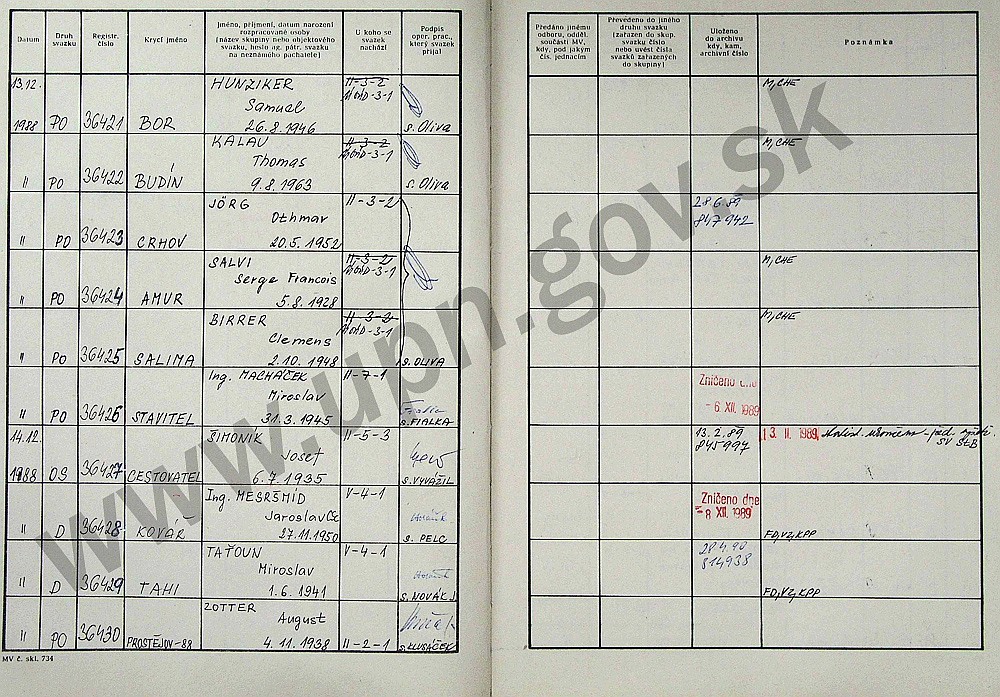 Datum
Druh
svazku
Registr.
číslo
Krycí jméno
Jméno, příjmení, datum narození
rozpracované osoby
(název skupiny nebo objektového
svazku, heslo ag. pátr. svazku
na neznámého pachatele)
U koho se
svazek
nachází
Podpis
oper. prac.,
který svazek
přijal
Předáno jinému
odboru, odděl.
součásti MV,
kdy, pod jakým
čís. jednacím
Převedeno do jiného
druhu svazku
(zařazen do skup.
svazku číslo
nebo uvést čísla
svazků zařazených
do skupiny)
Uloženo
do archivu
kdy, kam,
archivní číslo
Poznámka
13.12.
1988 PO 36421 BOR
HUNZIKER
Samual
26.8.1946
II-3-2
s. Oliva
M, CHE
II PO 36422 BUDÍN
KALAU
Thomas
9.8.1963
II-3-2
s. Oliva
M, CHE
II PO 36423 CRHOV
JÖRG
Othmar
20.5.1952
II-3-2
28.6.89
847942
II PO 36424 AMUR
SALVI
Serge Francois
5.8.1928
II-3-2
M, CHE
II PO 36425 SALIMA
BIRRER
Clemens
2.10.1948
II-3-2
s. OLIVA
M, CHE
II PO 36426 STAVITEL
Ing. MACHÁČEK
Miroslav
31.3.1945
II-7-1
s. FIALKA
Zničeno dne
- 6. XII. 1989
14.12.
1988 OS 36427 CESTOVATEL
ŠIMONÍK
Josef
6.7.1935
II-5-3
s. VYVÁŽIL
13.2.89
845997
13. II. 1989
SV StB
II D 36428 KOVÁŘ
Ing. MESRŠMÍD
Jaroslav CSc
27.11.1950
V-4-1
s. PELC
Zničeno dne
- 8. XII. 1989
FD, VZ, KPP
II D 36429 TAHI
TAŤOUN
Miroslav
1.6.1941
V-4-1
s. NOVÁK J.
28.4.90
814938
FD, VZ, KPP
II PO 36430 PROSTĚJOV-88
ZOTTER
August
4.11.1938
II-2-1
s. KLUSÁČEK
MV č. skl. 734
www.upn.gov.sk